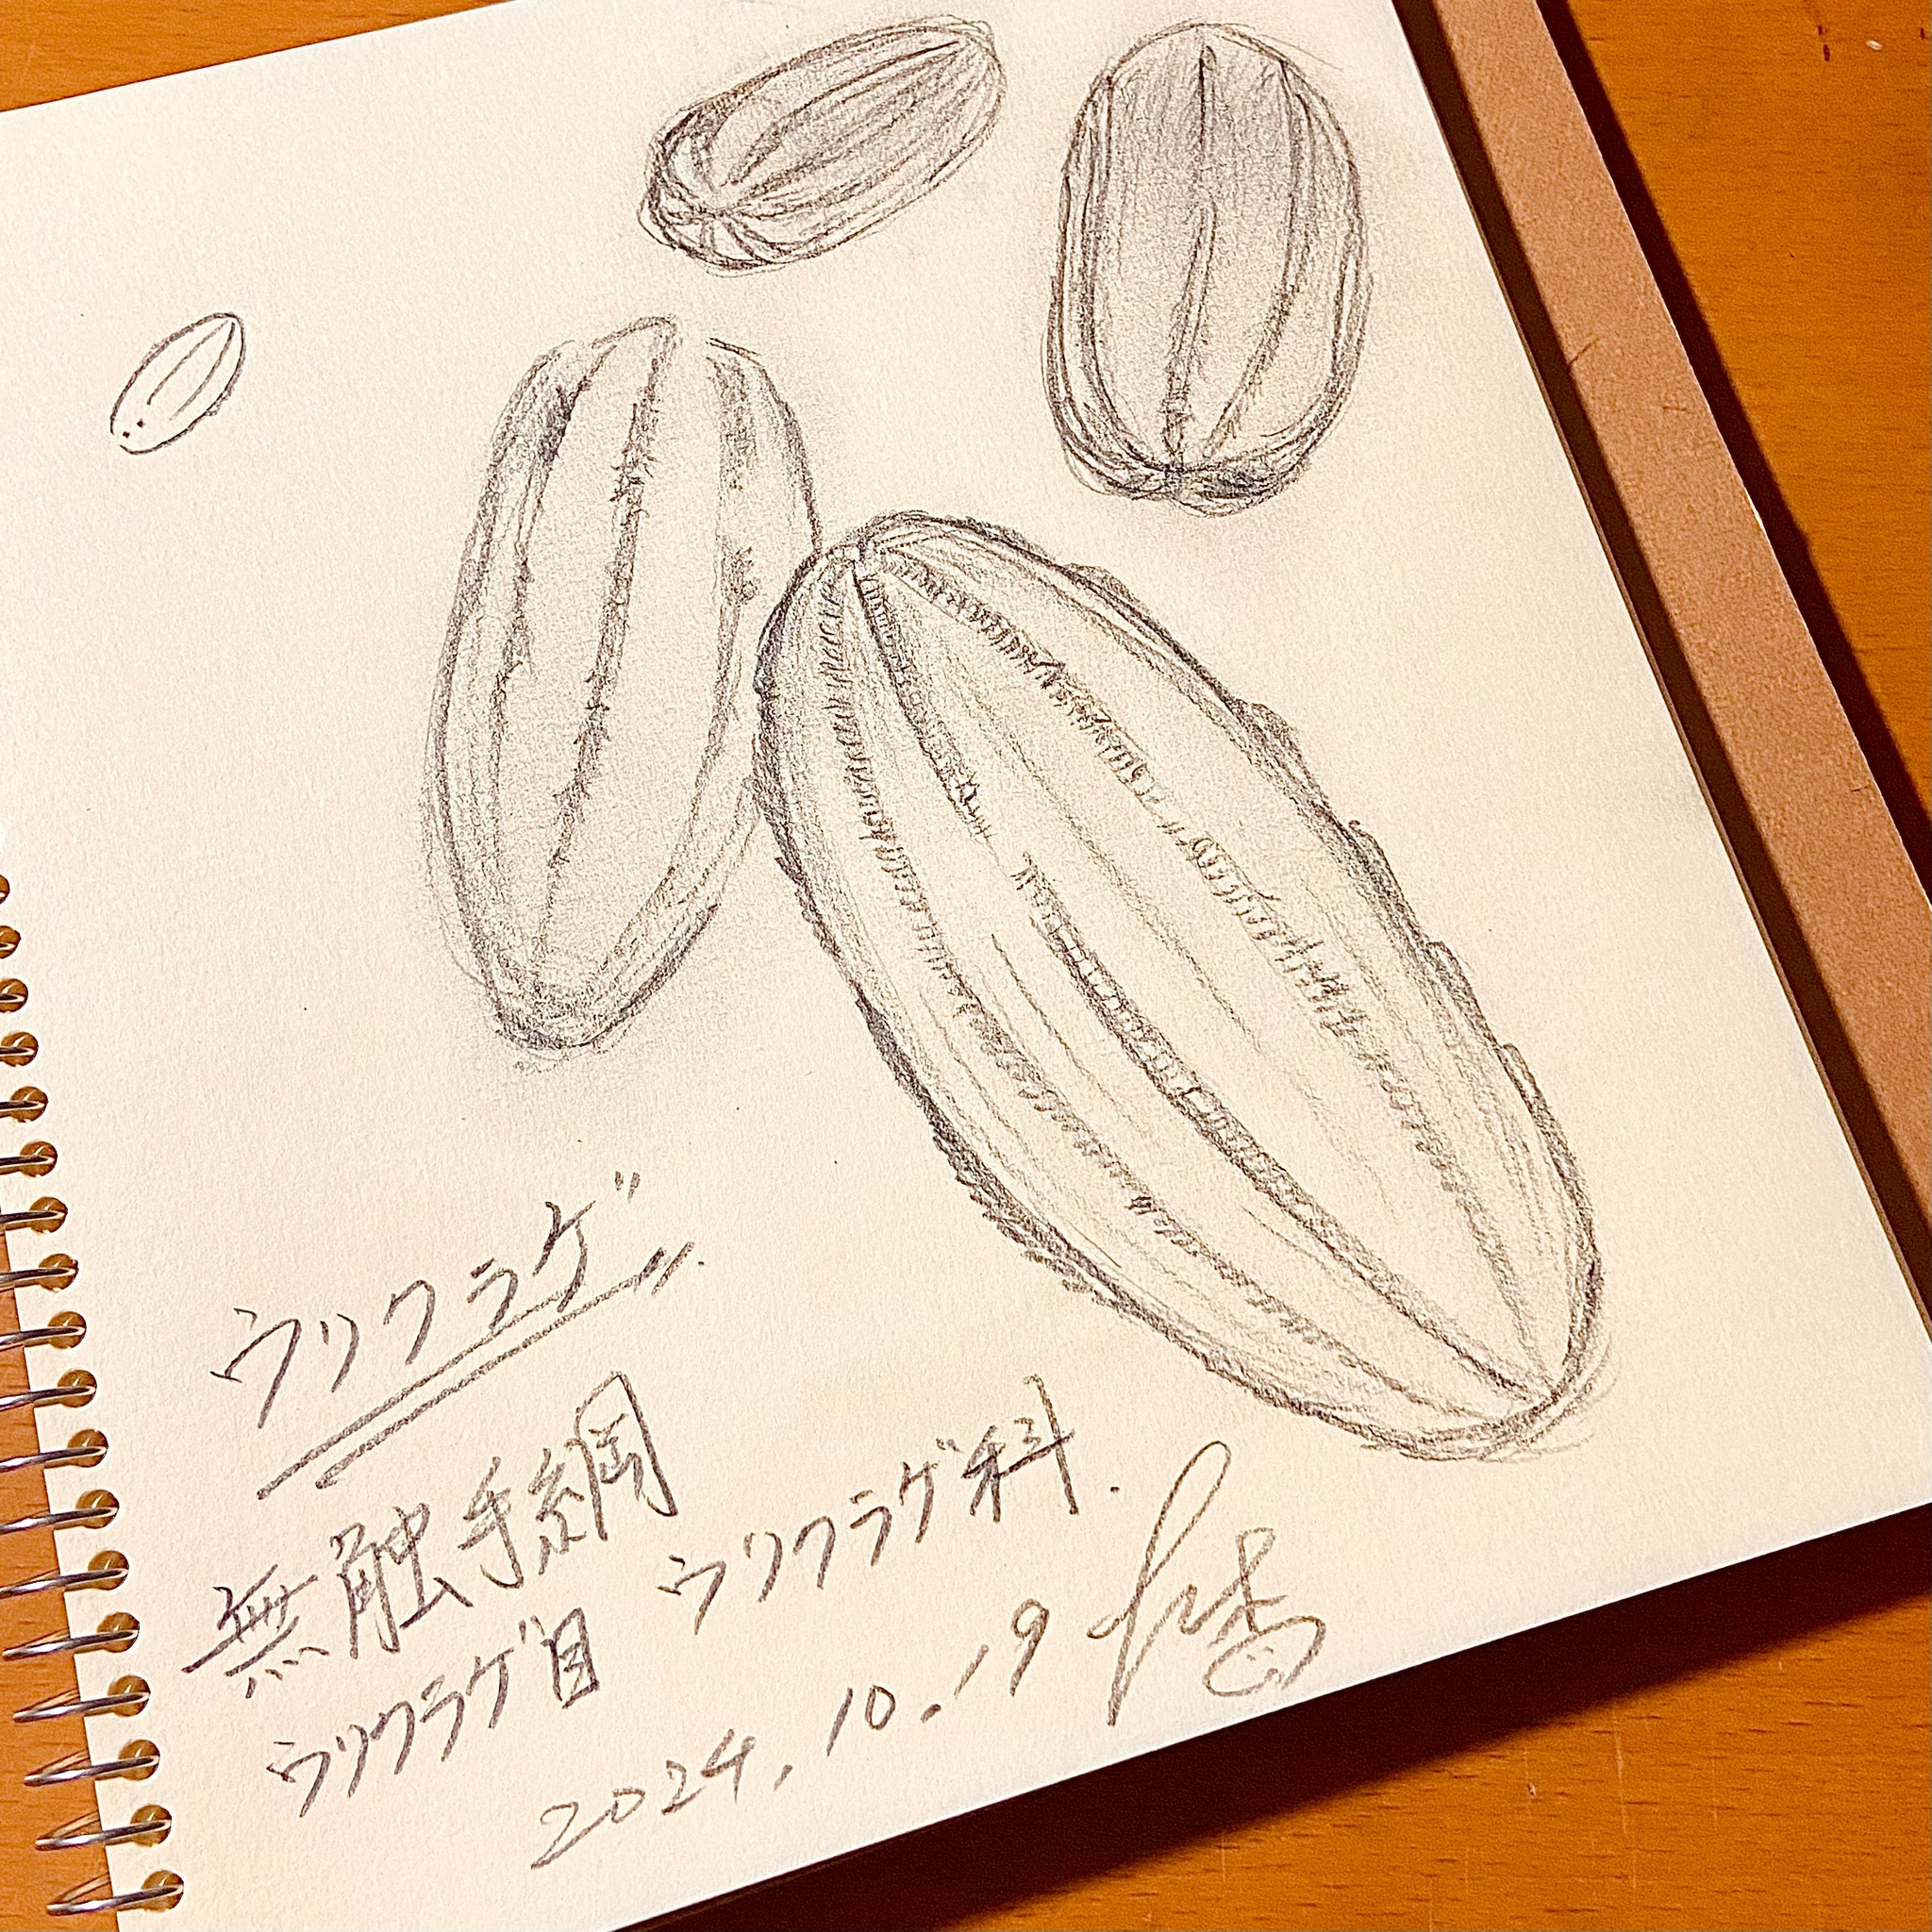 ウリクラゲ
無触手綱
ウリクラゲ目 ウリクラゲ科.
2024.10.19